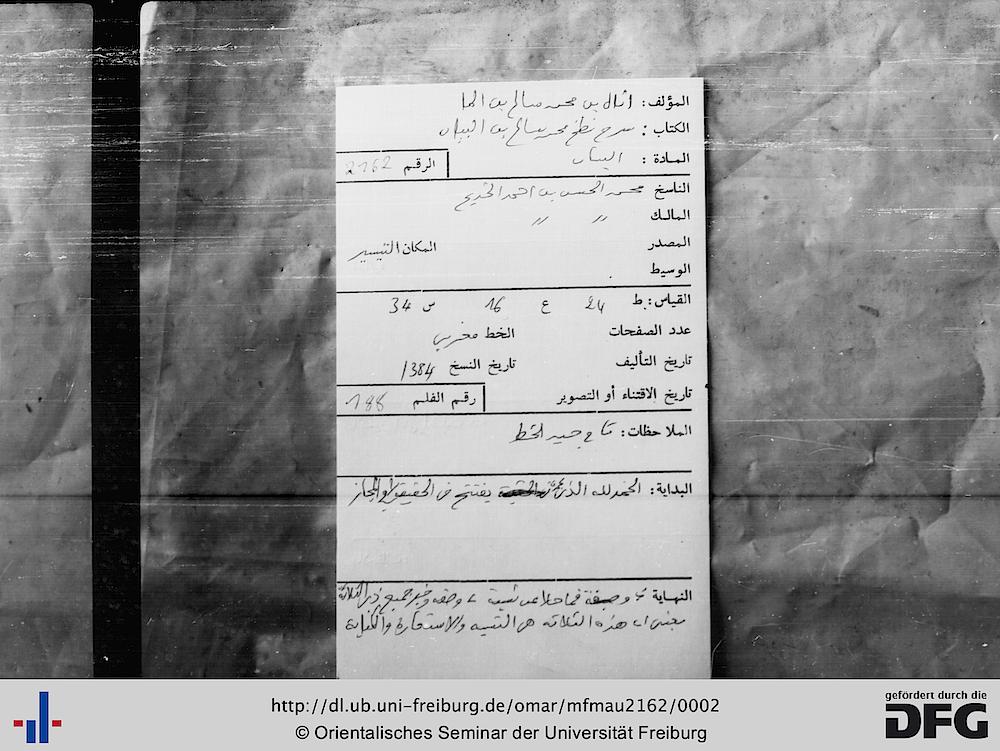 المؤلف: محمد سالم بن الما
الكتاب: شرح نظم محمد سالم بن
المادة: البيان
الرقم 2162
الناسخ محمد الحسن بن احمد الخديم
المالك " "
المصدر
المكان التيسير
الوسيط
القياس: ط 24 ع 16 س 34
عدد الصفحات
الخط مغربي
تاريخ التأليف
تاريخ النسخ 1384
تاريخ الاقتناء أو التصوير
رقم الفلم 188
الملاحظات: تام جيد الخط
البداية: الحمد لله الذي يفتتح في الحقيقة او المجاز
النهاية وصفة فما خلا عن
بمعنى ان هذه الثلاثة هي التشبيه والاستعارة والكناية
http://dl.ub.uni-freiburg.de/omar/mfmau2162/0002
© Orientalisches Seminar der Universität Freiburg
gefördert durch die
DFG